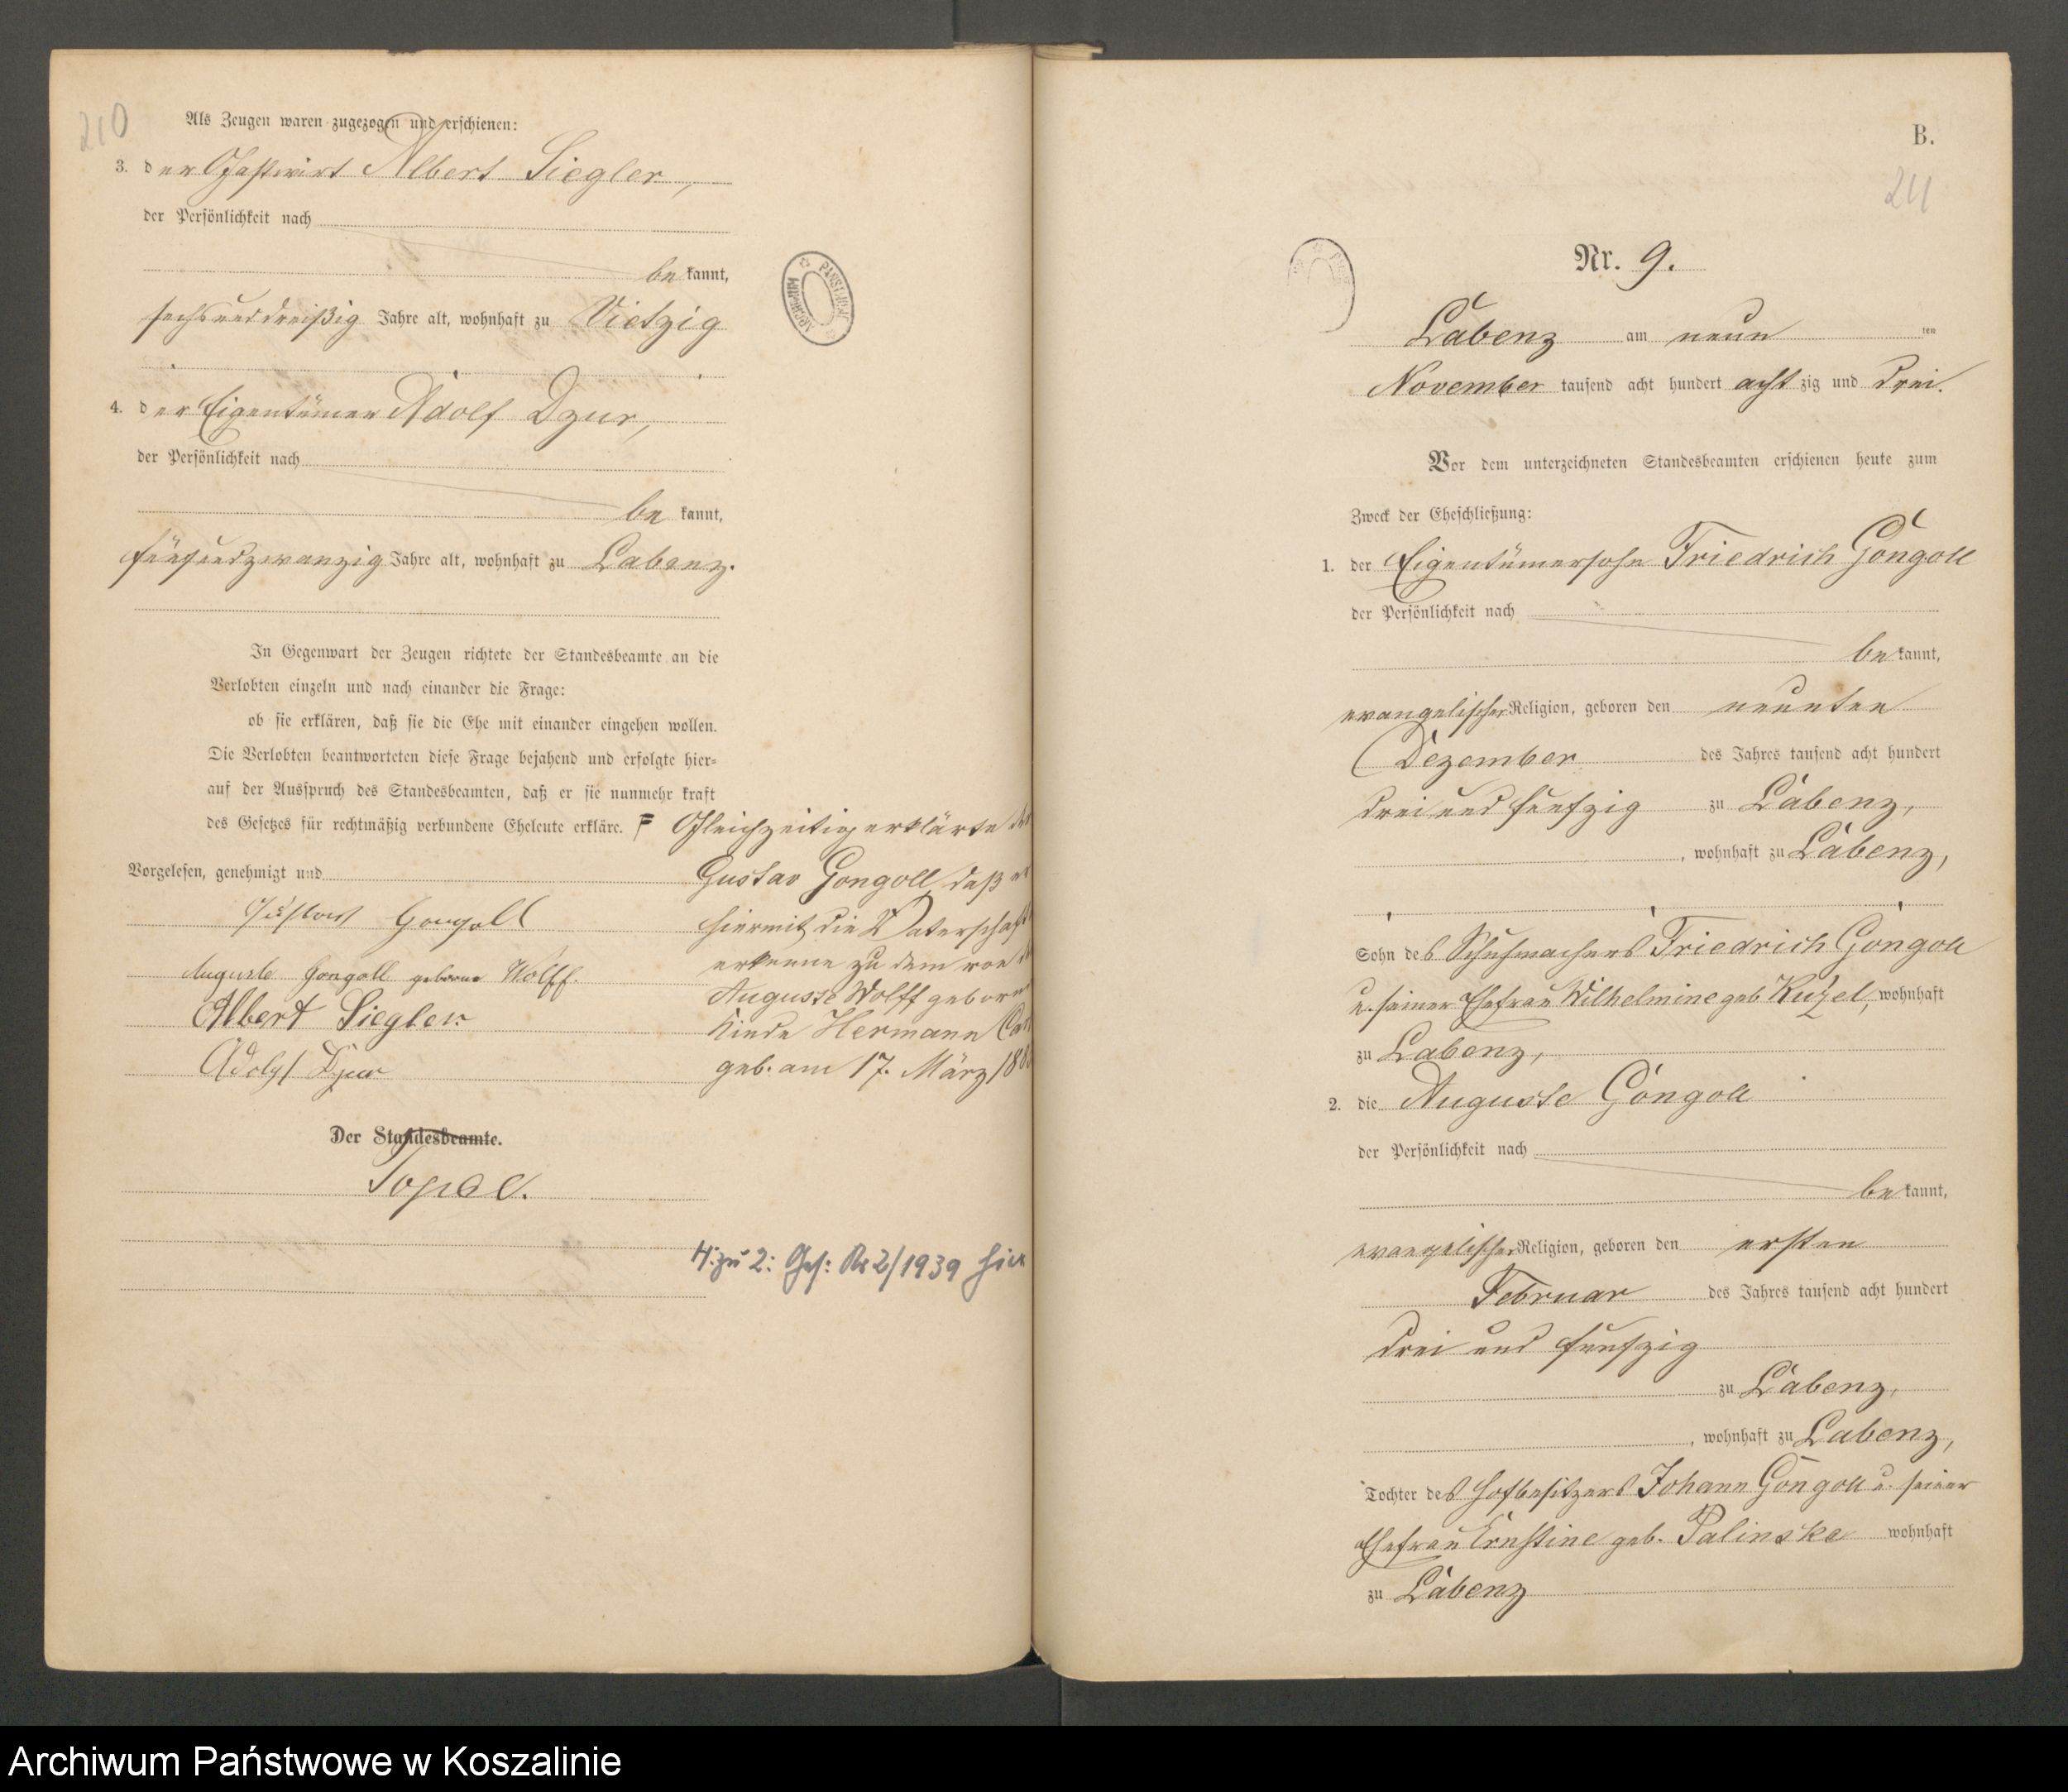 210
Als Zeugen waren zugezogen und erschienen:
3. der Gastwirt Albert Siegler,
der Persönlichkeit nach
be kannt,
sechsunddreißig Jahre alt, wohnhaft zu Vietzig
4. der Eigentümer Adolf Dzur,
der Persönlichkeit nach
be kannt,
fünfundzwanzig Jahre alt, wohnhaft zu Labenz.
In Gegenwart der Zeugen richtete der Standesbeamte an die
Verlobten einzeln und nach einander die Frage:
ob sie erklären, daß sie die Ehe mit einander eingehen wollen.
Die Verlobten beantworteten diese Frage bejahend und erfolgte hier-
auf der Ausspruch des Standesbeamten, daß er sie nunmehr kraft
des Gesetzes für rechtmäßig verbundene Eheleute erkläre. Gleichzeitig erklärte
Vorgelesen, genehmigt und
Gustav Gongoll, daß
hiermit die Vaterschaft
erkenne zu dem von
Auguste Wolff
Kinde Hermann
geb. am 17. März
Gustav Gongoll
Auguste Gongoll geborne Wolff.
Albert Siegler.
Adolf Dzur
Der Standesbeamte.
H. zu 2: 2/1939 hier
ARCHIWUM PAŃSTWOWE
B.
211
Nr. 9.
Labenz am neun ten
November tausend acht hundert acht zig und drei.
Vor dem unterzeichneten Standesbeamten erschienen heute zum
Zweck der Eheschließung:
1. der Eigentümersohn Friedrich Gongoll
der Persönlichkeit nach
be kannt,
evangelischer Religion, geboren den neunten
Dezember des Jahres tausend acht hundert
drei und fünfzig zu Labenz,
, wohnhaft zu Labenz,
Sohn des Schuhmachers Friedrich Gongoll
u. seiner Ehefrau Wilhelmine geb. Kutzel, wohnhaft
zu Labenz,
2. die Auguste Gongoll
der Persönlichkeit nach
be kannt,
evangelischer Religion, geboren den ersten
Februar des Jahres tausend acht hundert
drei und fünfzig
zu Labenz,
, wohnhaft zu Labenz,
Tochter des Hofbesitzers Johann Gongoll u. seiner
Ehefrau Ernstine geb. Palinske wohnhaft
zu Labenz
Archiwum Państwowe w Koszalinie